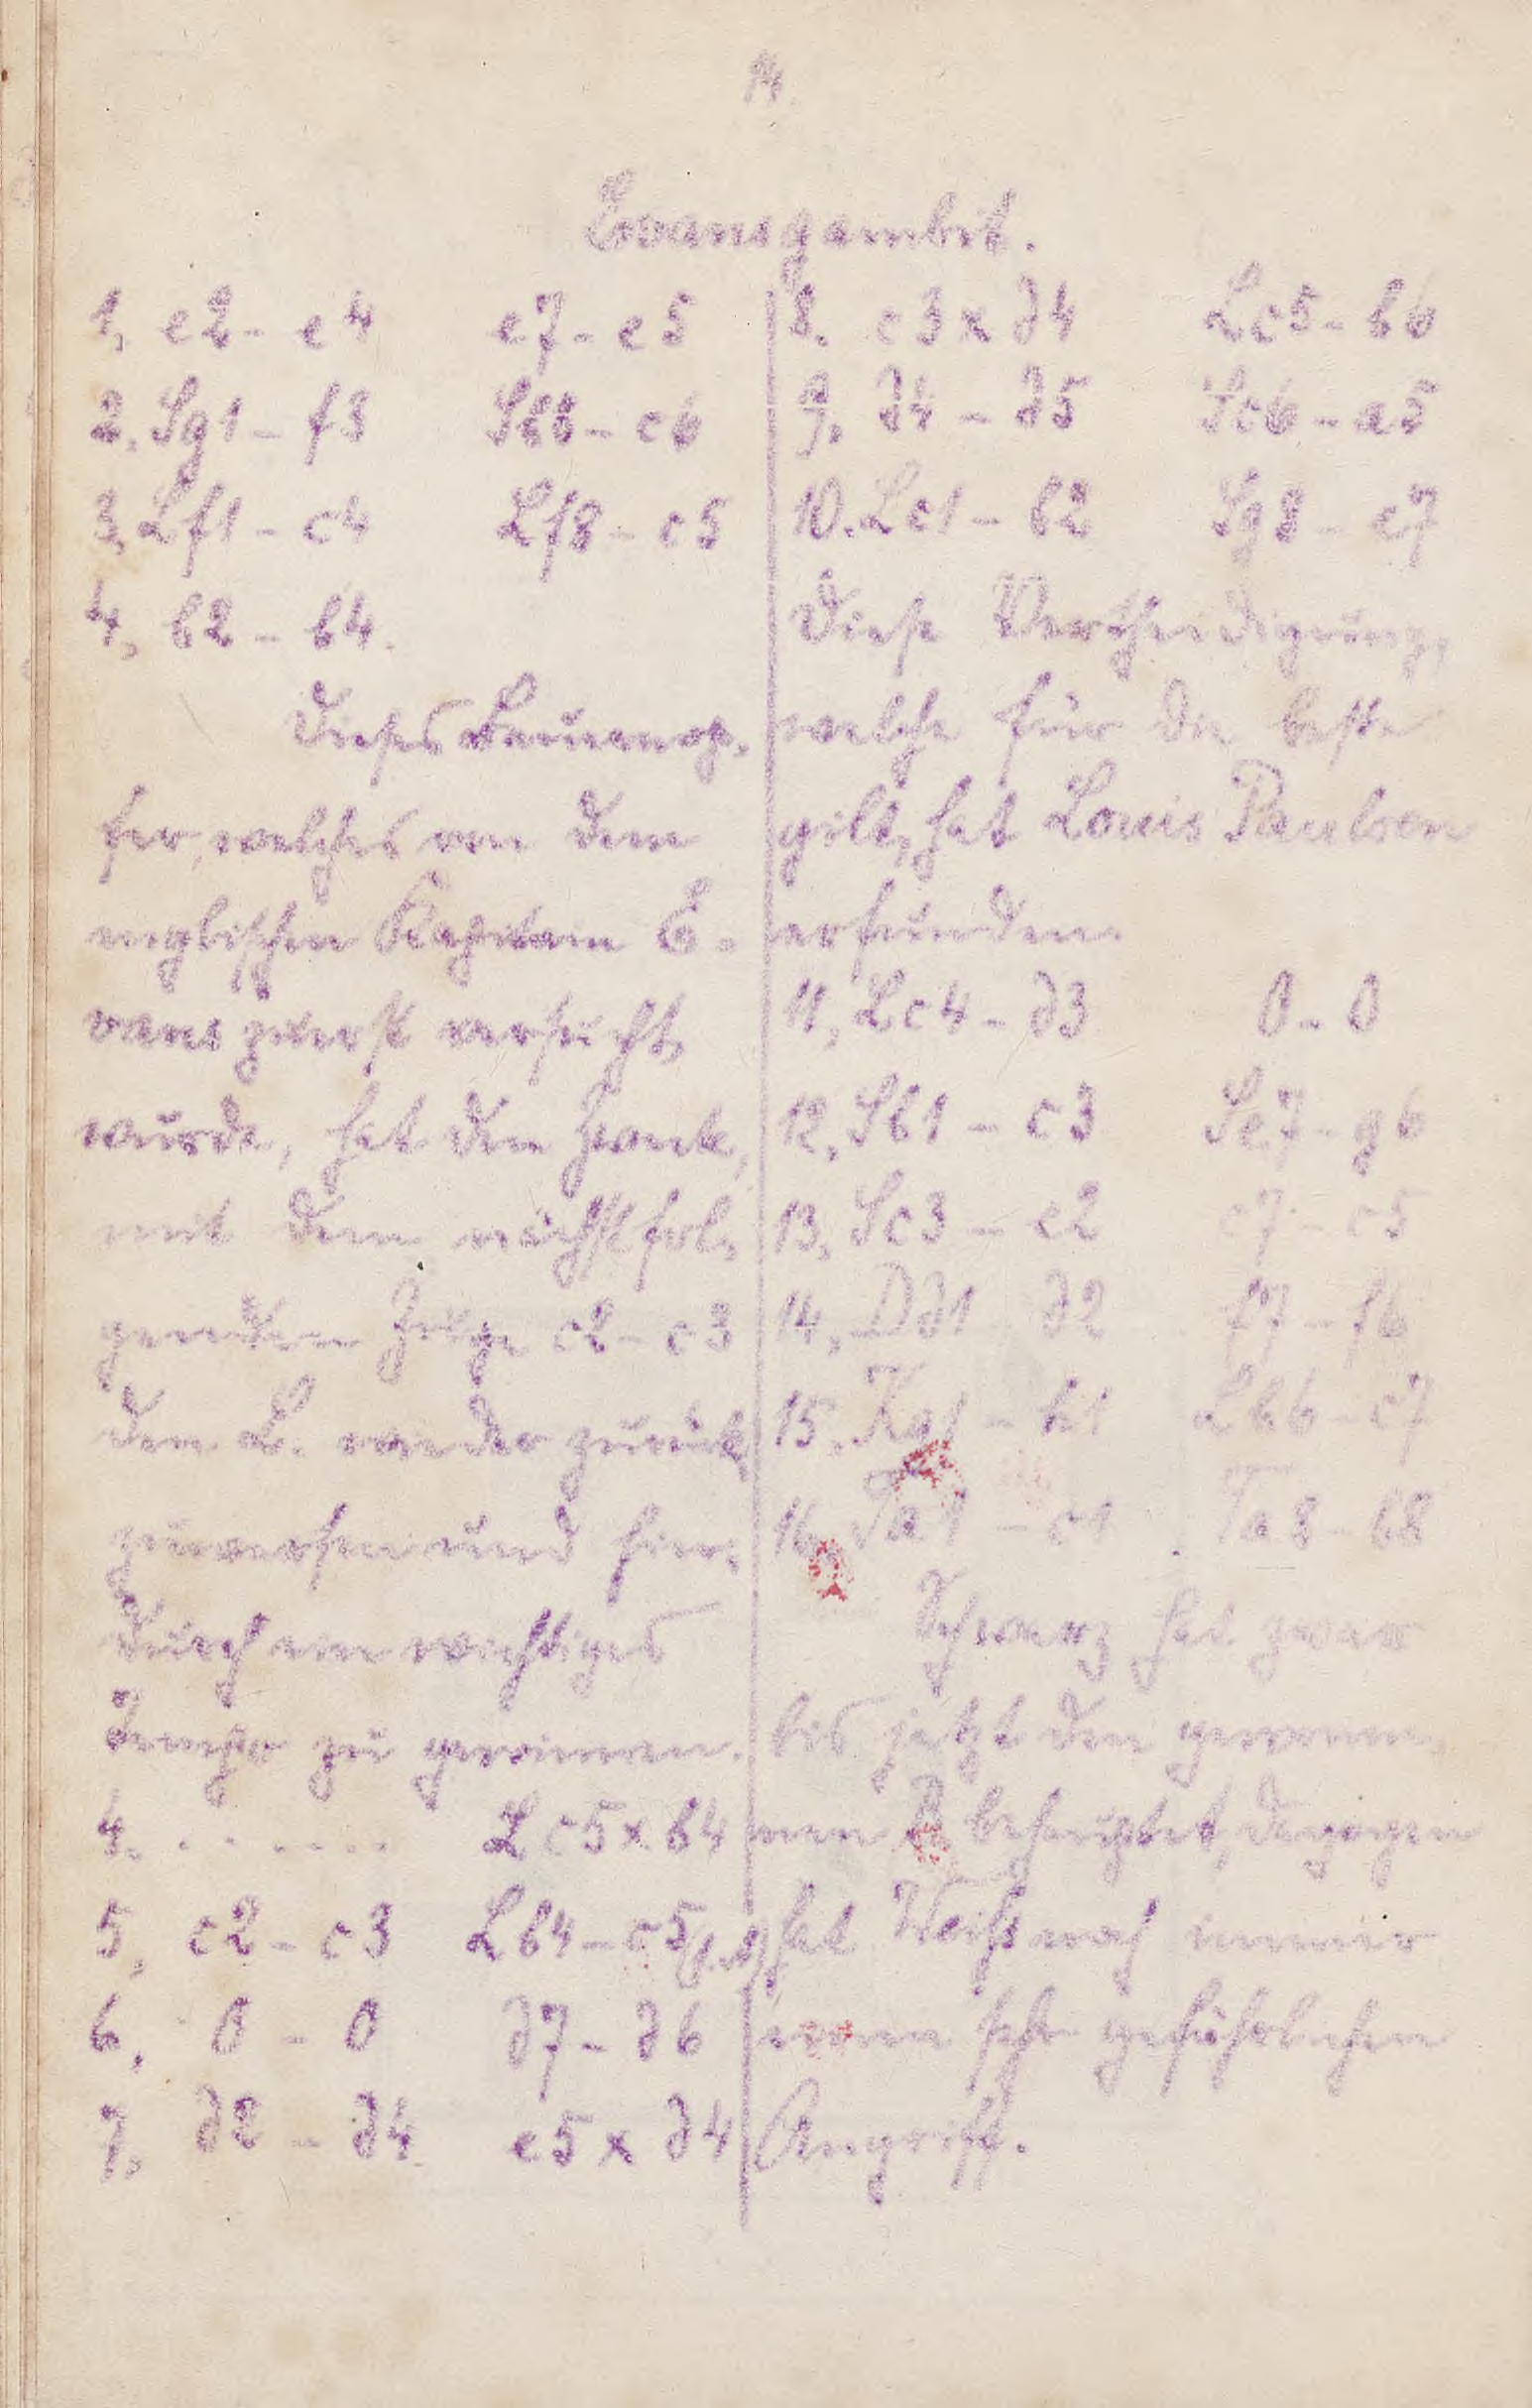 14.
Evansgambit.
1, e2 - e4 e7 - e5
2. Sg1 - f3 Sb8 - c6
3, Lf1 - c4 Lf8 - c5
4, b2 - b4.
Dieses Bauernop-
fer, welches von dem
englischen Kapitain E-
vans zuerst versucht
wurde, hat den Zweck,
mit dem nächstfol-
genden Zuge c2 - c3
den L. wieder zurück
zuwerfen und hier-
durch ein wichtiges
Tempo zu gewinnen.
4. . . . . . . . Lc5 x b4
5, c2 - c3 Lb4 - c5
6, 0 - 0 d7 - d6
7, d2 - d4 e5 x d4
8. c3 x d4 Lc5 - b6
9. d4 - d5 Sc6 - a5
10. Lc1 - b2 Sg8 - e7
Diese Vertheidigung,
welche für die beste
gilt, hat Louis Paulsen
erfunden.
11, Lc4 - d3 0 - 0
12, Sb1 - c3 Se7 - g6
13, Sc3 - e2 c7 - c5
14, Dd1 - d2 f7 - f6
15. Kg1 - h1 Lb6 - c7
16. Ta1 - c1 Ta8 - b8
Schwarz hat zwar
bis jetzt den gewonne-
nen B behauptet, dagegen
hat Weiß noch immer
einen sehr gefährlichen
Angriff.